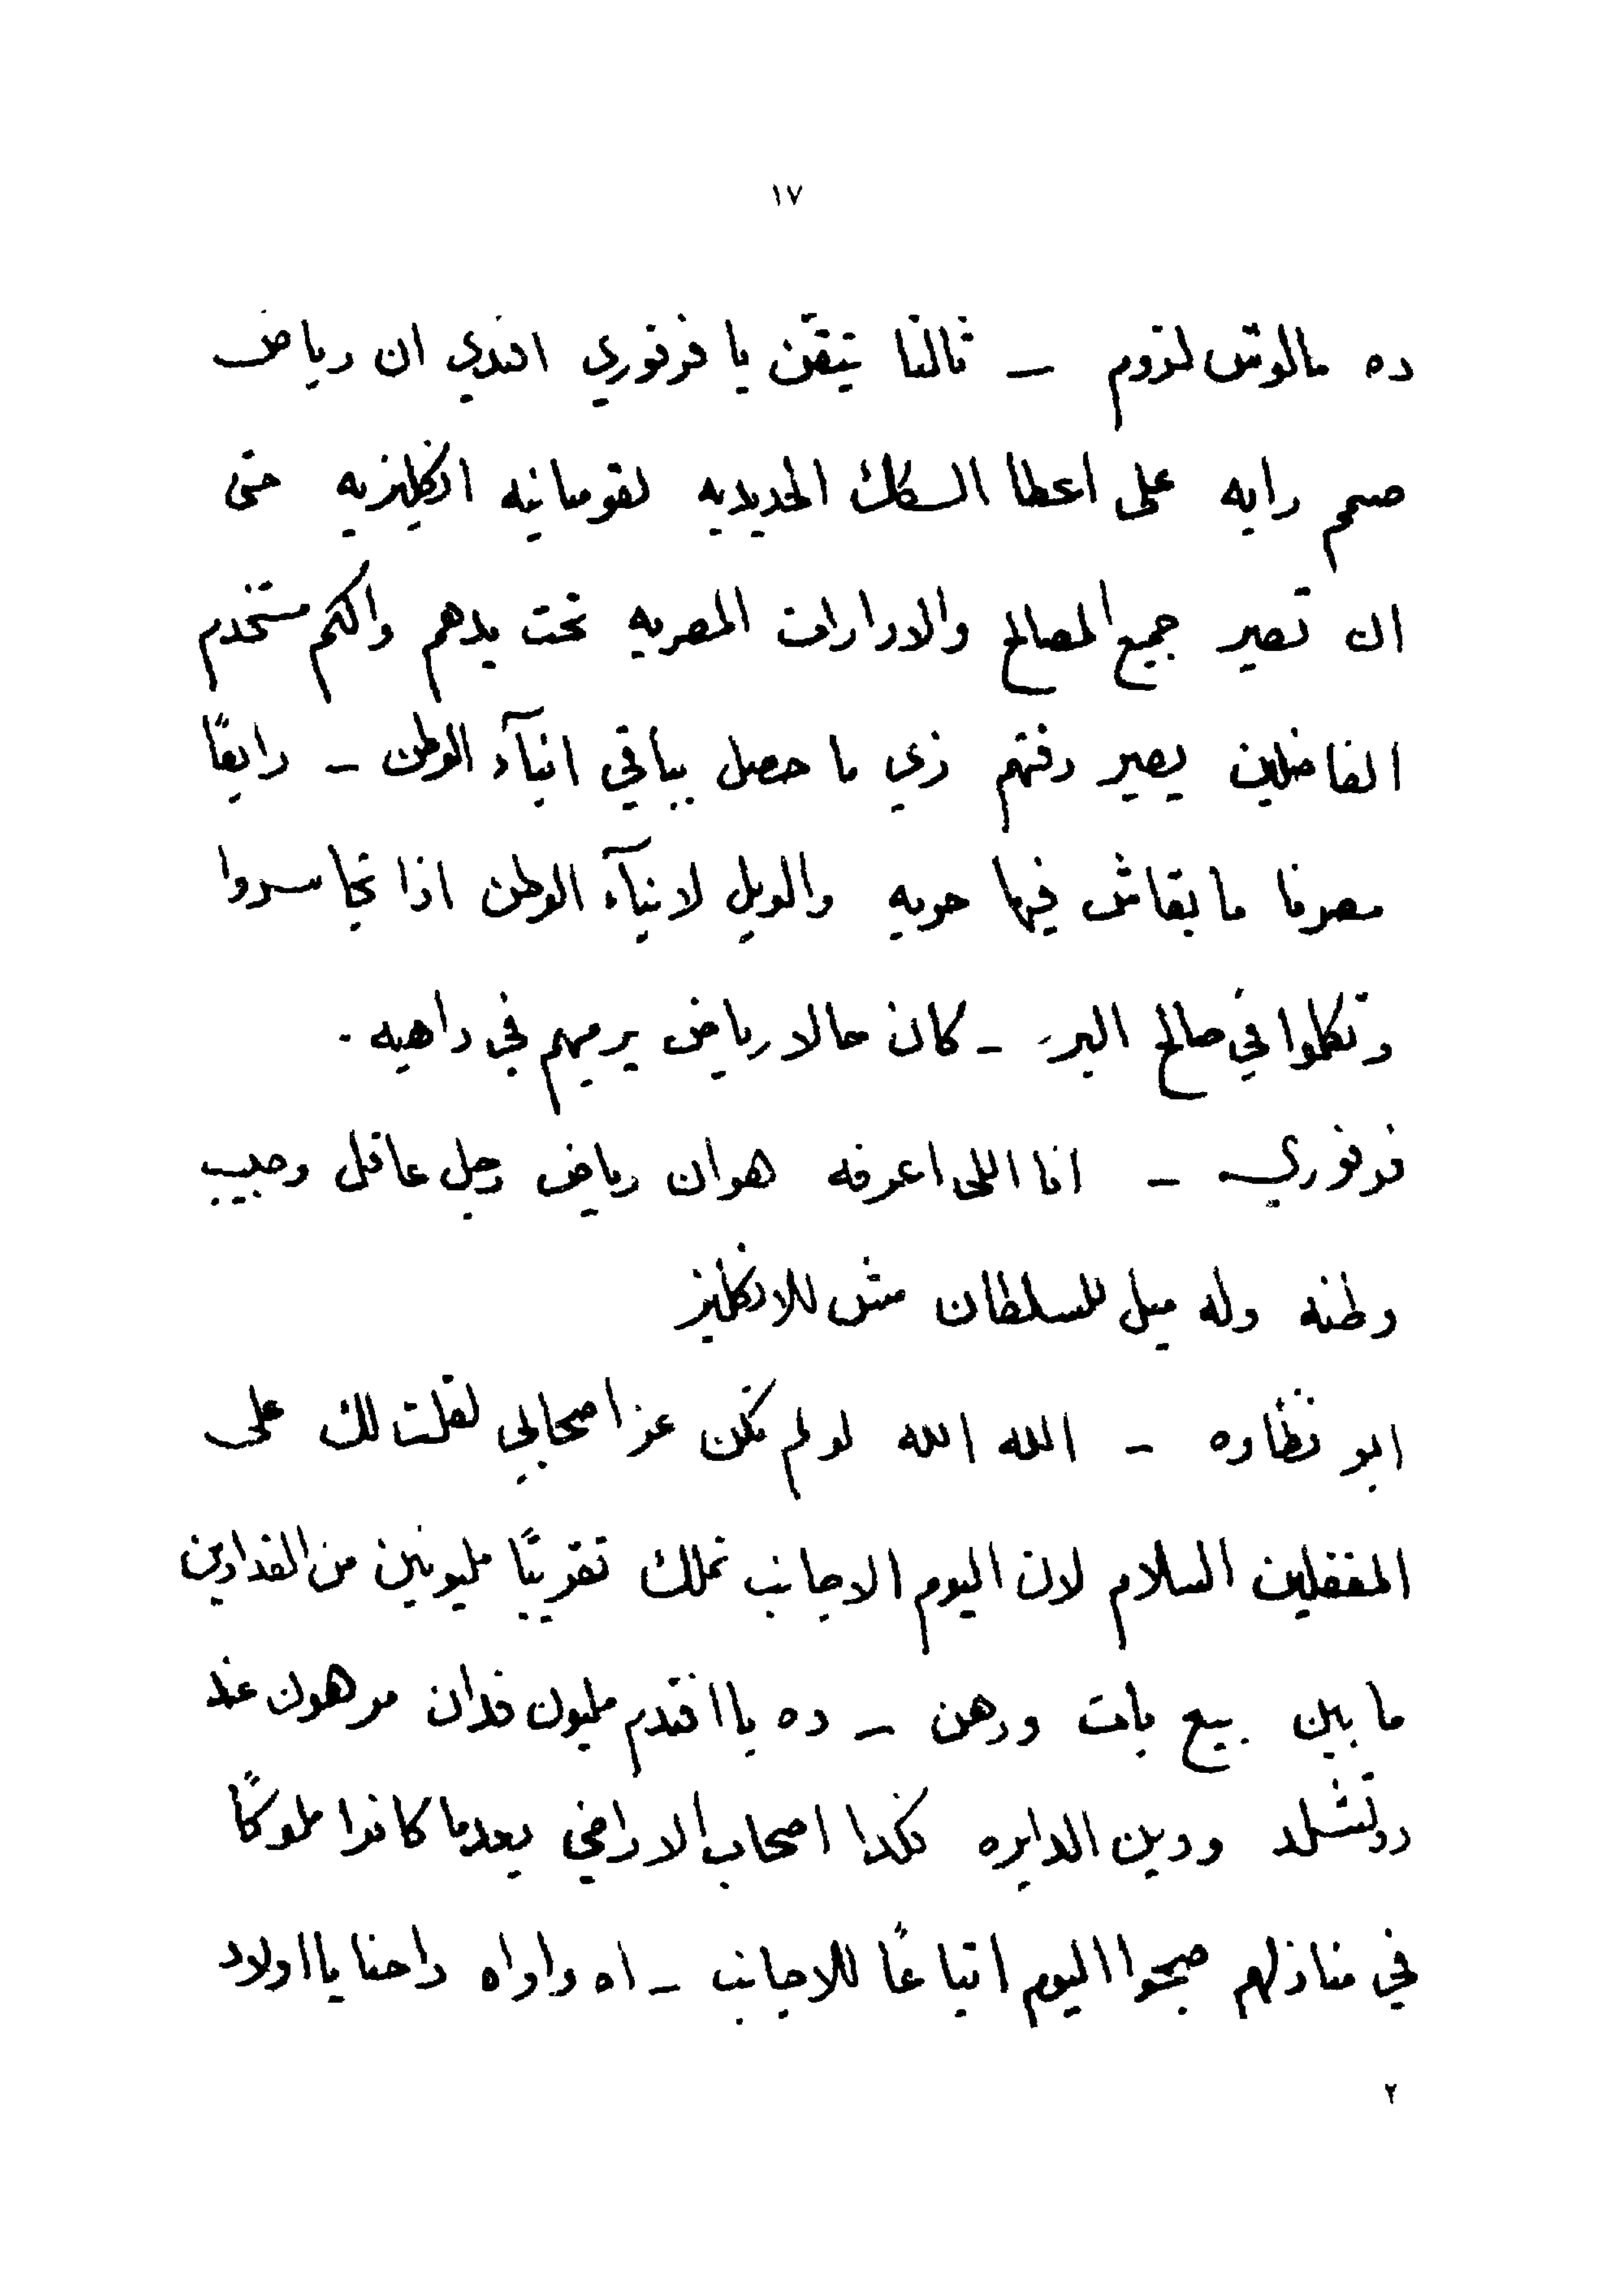 ١٧
ده مالوش لزوم – ثالثا تيقن يا فرفوري افندي ان رياض
صمم رايه على اعطا السكك الحديديه لقومبانيه انكليزيه حتى
ان تصير جميع المصالح والادارات المصريه تحت يدهم والكم مستخدم
الفاضلين يصير رفتهم زي ما حصل بباقي ابنآء الوطن – رابعًا
مصرنا ما بقاش فيها حريه والويل لابنآء الوطن اذا تجاسروا
وتكلموا في صالح البر – كان حالا رياض يرميهم في داهيه .
فرفوري – انا اللي اعرفه هو ان رياض رجل عاقل وحبيب
وطنه وله ميل للسلطان مش للانكليز
ابو نظاره – الله الله لو لم تكن عز اصحابي لقلت لك على
المغفلين السلام لان اليوم الاجانب تملك تقريبًا مليونين من الفدادين
ما بين بيع بات ورهن – ده يا افندم مليون فدان مرهون عند
روتشلد ودين الدايره فكدا اصحاب الاراضي بعدما كانوا ملوكًا
في منازلهم صبحوا اليوم اتباعًا للاجانب – اه واواه واحنا يا اولاد
٢